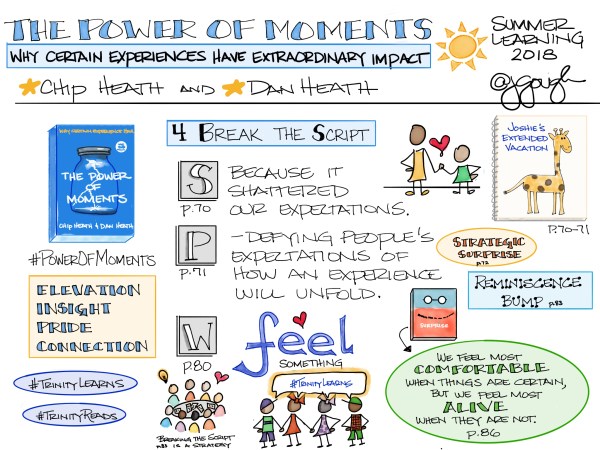 THE POWER OF MOMENTS
WHY CERTAIN EXPERIENCES HAVE EXTRAORDINARY IMPACT
CHIP HEATH AND DAN HEATH
SUMMER
LEARNING
2018
@jgough
THE POWER
OF
MOMENTS
CHIP HEATH & DAN HEATH
#POWEROFMOMENTS
ELEVATION
INSIGHT
PRIDE
CONNECTION
#TRINITYLEARNS
#TRINITYREADS
4 BREAK THE SCRIPT
S
P.70
BECAUSE IT
SHATTERED
OUR EXPECTATIONS.
P
P.71
-DEFYING PEOPLE'S
EXPECTATIONS OF
HOW AN EXPERIENCE
WILL UNFOLD.
W
P.80
feel
SOMETHING
#TRINITYLEARNS
BREAKING THE SCRIPT
P.83 IS A STRATEGY
JOSHIE'S
EXTENDED
VACATION
P.70-71
STRATEGIC
SURPRISE
P.72
REMINISCENCE
BUMP P.83
SURPRISE
WE FEEL MOST
COMFORTABLE
WHEN THINGS ARE CERTAIN,
BUT WE FEEL MOST
ALIVE
WHEN THEY ARE NOT.
P.86